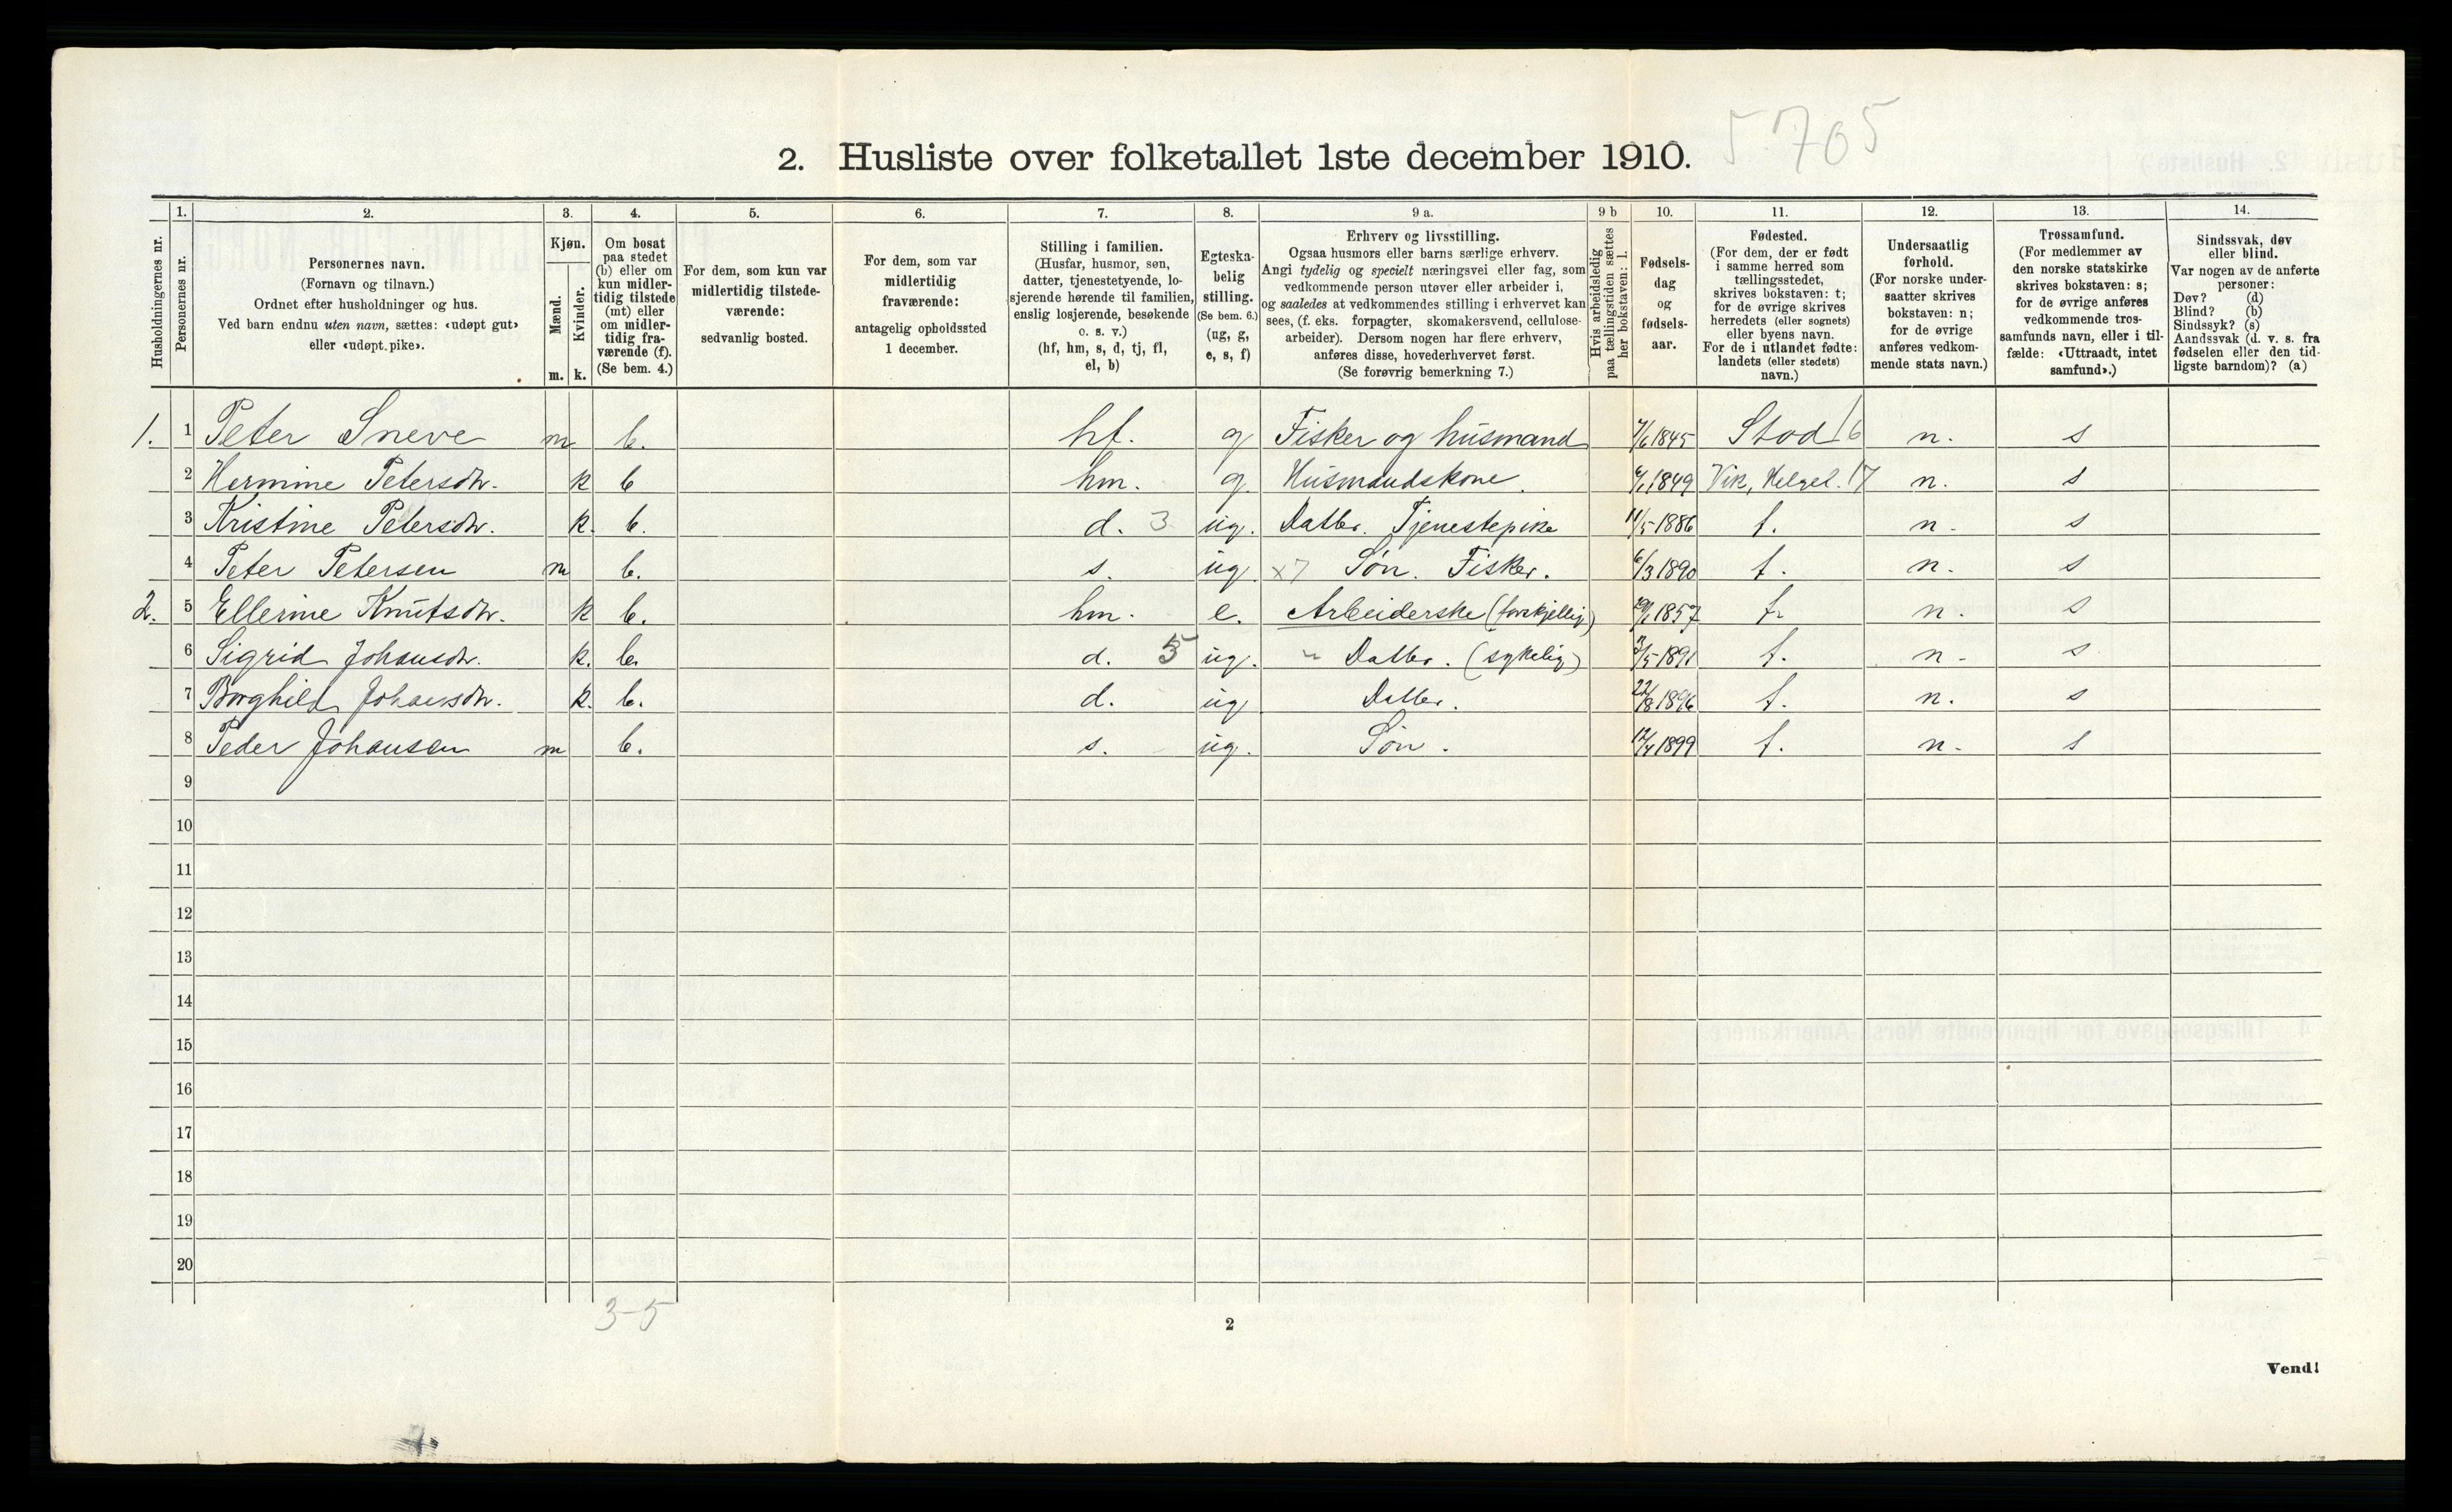 5705
2. Husliste over folketallet 1ste december 1910.
Husholdningernes nr.
1.
Personernes nr.
2.
Personernes navn.
(Fornavn og tilnavn.)
Ordnet efter husholdninger og hus.
Ved barn endnu uten navn, sættes: «udøpt gut»
eller «udøpt pike».
3.
Kjøn.
Mænd.
Kvinder.
m. k.
4.
Om bosat
paa stedet
(b) eller om
kun midler-
tidig tilstede
(mt) eller
om midler-
tidig fra-
værende (f).
(Se bem. 4.)
5.
For dem, som kun var
midlertidig tilstede-
værende:
sedvanlig bosted.
6.
For dem, som var
midlertidig
fraværende:
antagelig opholdssted
1 december.
7.
Stilling i familien.
(Husfar, husmor, søn,
datter, tjenestetyende, lo-
sjerende hørende til familien,
enslig losjerende, besøkende
o. s. v.)
(hf, hm, s, d, tj, fl,
el, b)
8.
Egteska-
belig
stilling.
(Se bem. 6.)
(ug, g,
e, s, f)
9 a.
Erhverv og livsstilling.
Ogsaa husmors eller barns særlige erhverv.
Angi tydelig og specielt næringsvei eller fag, som
vedkommende person utøver eller arbeider i,
og saaledes at vedkommendes stilling i erhvervet kan
sees, (f. eks. forpagter, skomakersvend, cellulose-
arbeider). Dersom nogen har flere erhverv,
anføres disse, hovederhvervet først.
(Se forøvrig bemerkning 7.)
9 b
Hvis arbeidsledig
paa tællingstiden sættes
her bokstaven: l.
10.
Fødsels-
dag
og
fødsels-
aar.
11.
Fødested.
(For dem, der er født
i samme herred som
tællingsstedet,
skrives bokstaven: t;
for de øvrige skrives
herredets (eller sognets)
eller byens navn.
For de i utlandet fødte:
landets (eller stedets)
navn.)
12.
Undersaatlig
forhold.
(For norske under-
saatter skrives
bokstaven: n;
for de øvrige
anføres vedkom-
mende stats navn.)
13.
Trossamfund.
(For medlemmer av
den norske statskirke
skrives bokstaven: s;
for de øvrige anføres
vedkommende tros-
samfunds navn, eller i til-
fælde: «Uttraadt, intet
samfund».)
14.
Sindssvak, døv
eller blind.
Var nogen av de anførte
personer:
Døv? (d)
Blind? (b)
Sindssyk? (s)
Aandssvak (d. v. s. fra
fødselen eller den tid-
ligste barndom)? (a)
1. 1 Peter Sneve m b. hf. g Fisker og husmand 7/6 1845 Stod 16 n. s
2 Hermine Petersdtr. k b hm. g. Husmandskone. 1849 Vik, Helgel. 17 n. s
3 Kristine Petersdtr. k. b. d. 3 ug. Datter. Tjenestepike 11/5 1886 t. n. s
4 Peter Petersen m b. s. ug. x7 Søn. Fisker. 6/3 1890 t. n. s
2. 5 Ellerine Knutsdtr. k b. hm. e. Arbeiderske (forskjellig) 1857 t. n. s
6 Sigrid Johansdtr. k. b. d. 5 ug. " Datter. (sykelig) 1891 t. n. s
7 Borghild Johansdtr. k. b. d. ug Datter. 22/8 1896 t. n. s
8 Peder Johansen m b. s. ug. Søn. 12/4 1899 t. n. s
9
10
11
12
13
14
15
16
17
18
19
20
3-5
2
Vend!